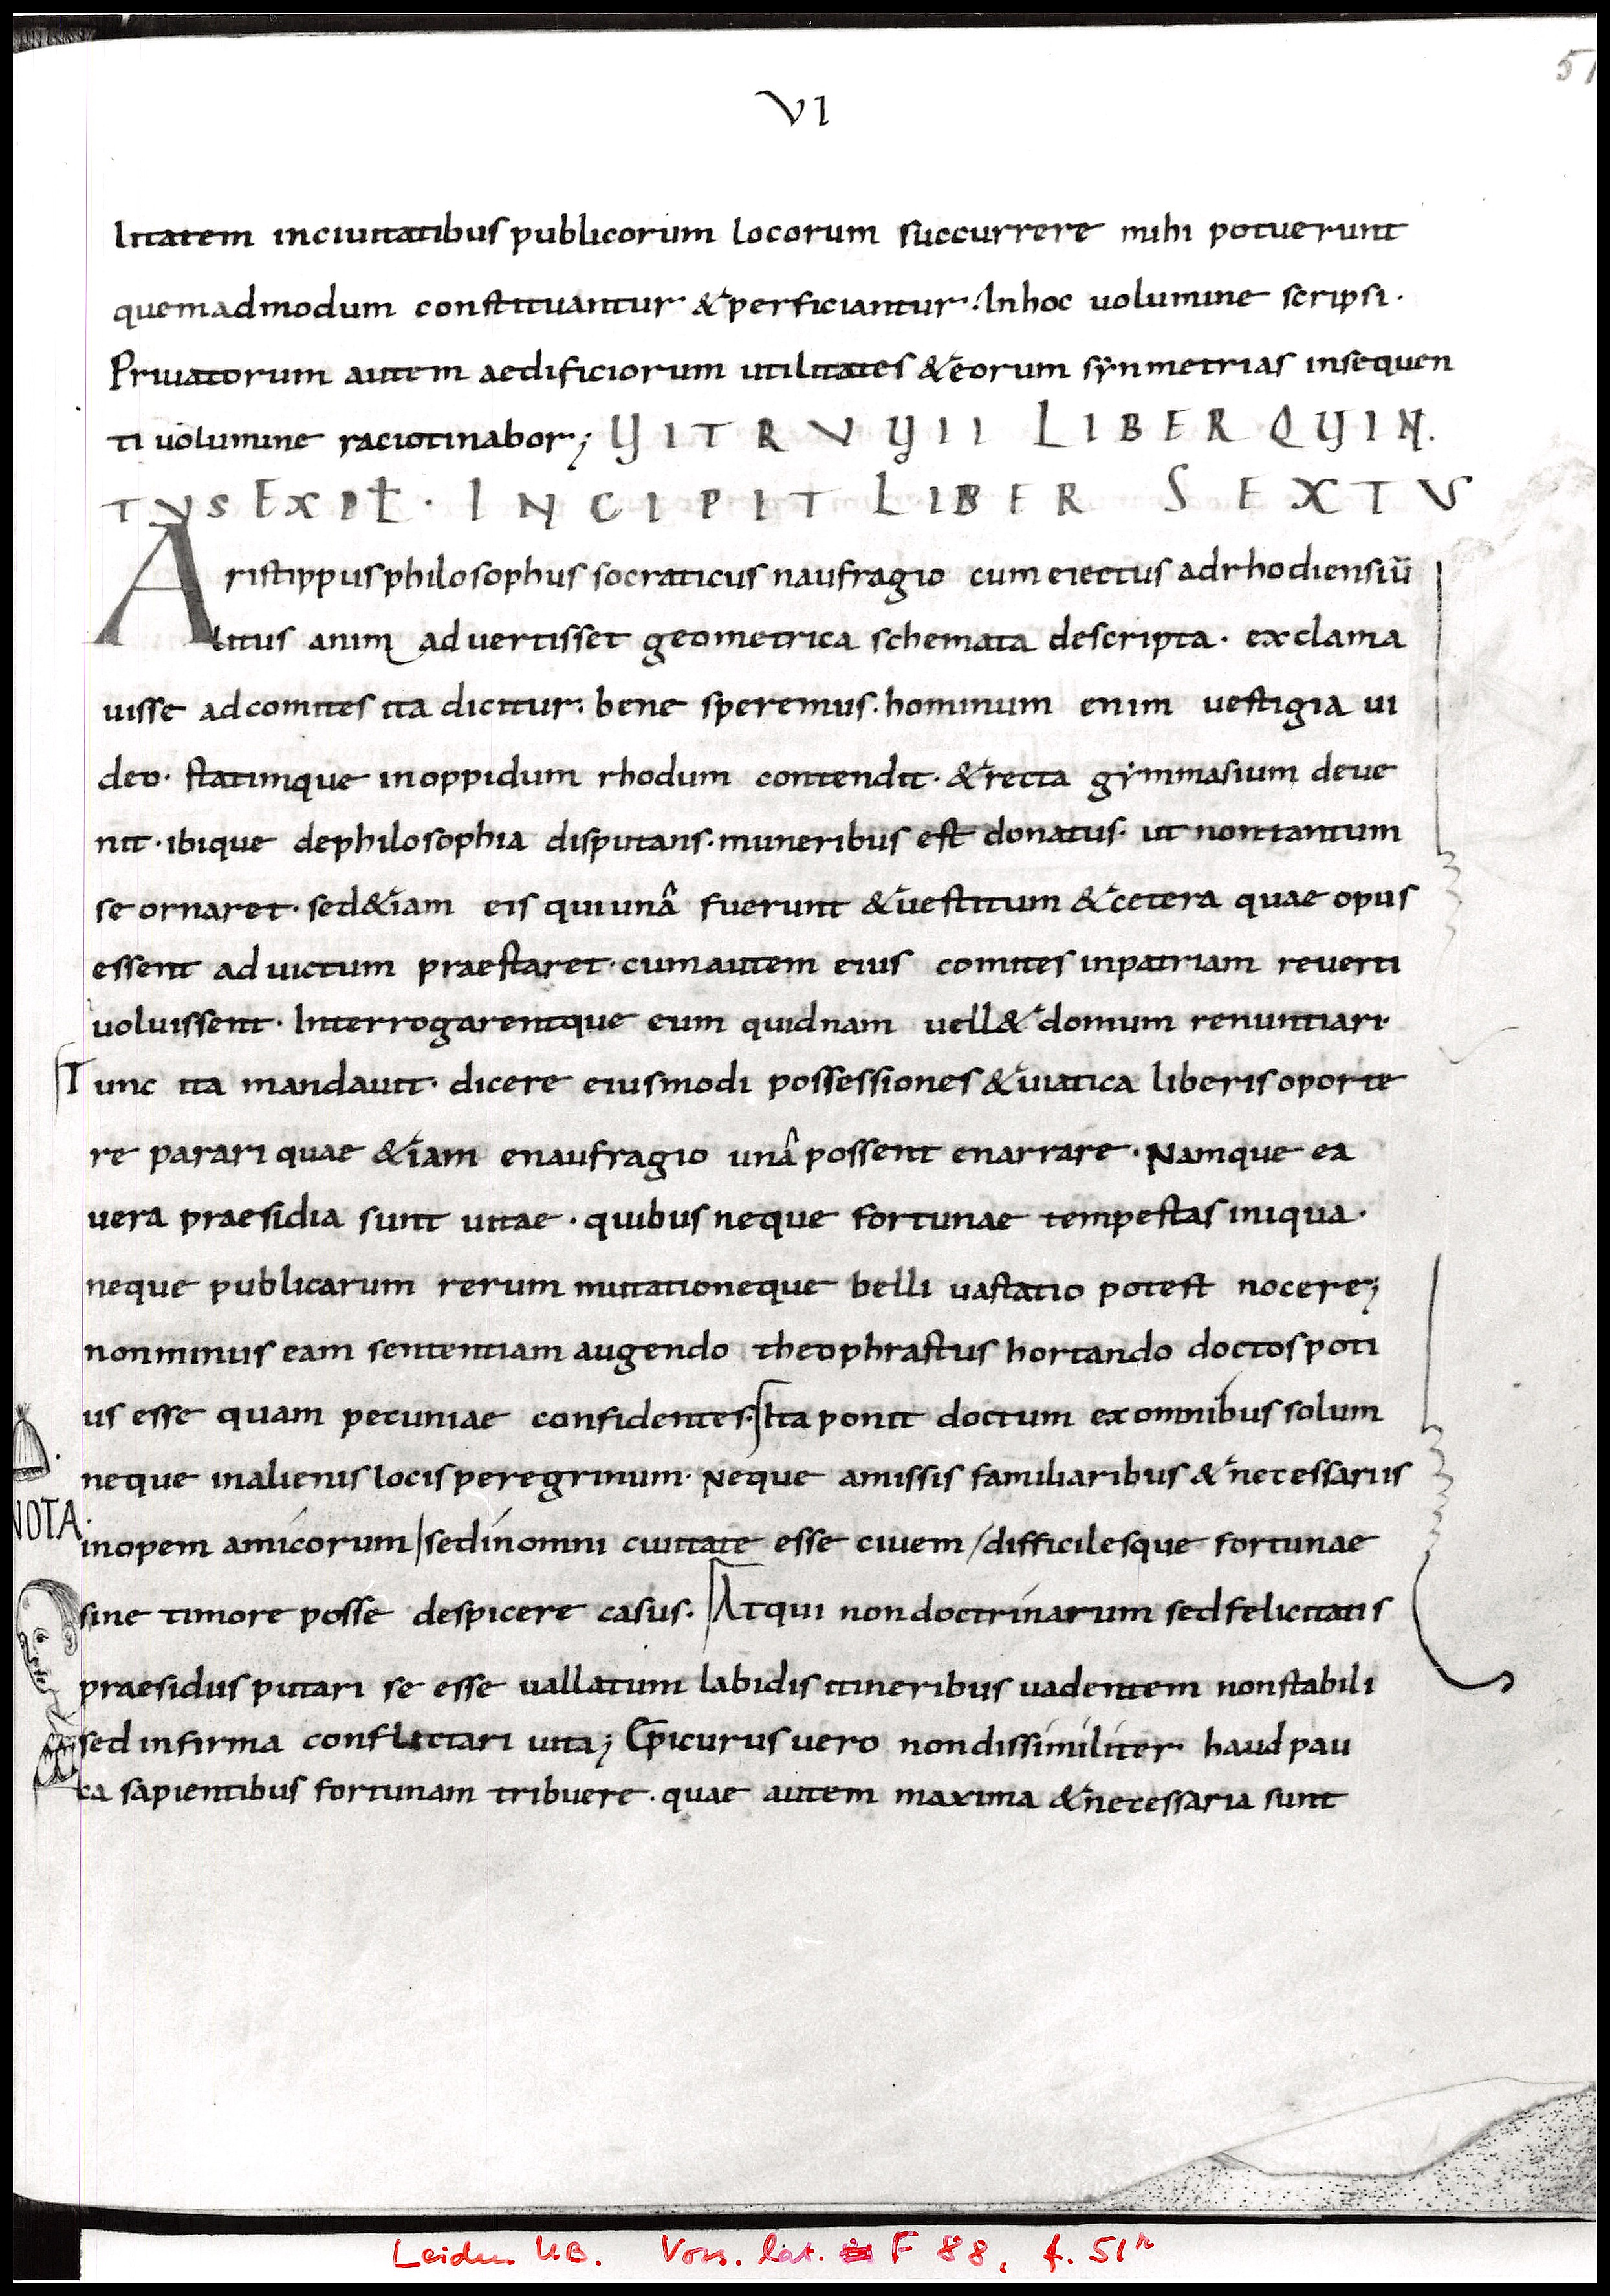 51
VI
litatem inciuitatibus publicorum locorum succurrere mihi potuerunt
quemadmodum constituantur & perficiantur. Inhoc uolumine scripsi.
Priuatorum autem aedificiorum utilitates & eorum symmetrias insequen
ti uolumine raciotinabor; VITRVVII LIBER QVIN.
TVS EXPL̄. INCIPIT LIBER SEXTV
Aristippus philosophus socraticus naufragio cum eiectus adrhodiensiū
litus anim advertisset geometrica schemata descripta. exclama
uisse adcomites ita dicitur: bene speremus. hominum enim uestigia ui
deo. statimque inoppidum rhodum contendit. & recta gymnasium deue
nit. ibique dephilosophia disputans. muneribus est donatus. ut nontantum
se ornaret. sed&iam eis quiunâ fuerunt & uestitum & cetera quae opus
essent ad uictum praestaret. cumautem eius comites inpatriam reuerti
uoluissent. Interrogarentque eum quidnam uell& domum renuntiari.
Tunc ita mandauit. dicere eiusmodi possessiones & uiatica liberis oporte
re parari quae &iam enaufragio unâ possent enarrare. Namque ea
uera praesidia sunt uitae. quibus neque fortunae tempestas iniqua.
neque publicarum rerum mutationeque belli uastatio potest nocere;
nonminus eam sententiam augendo theophrastus hortando doctos poti
us esse quam pecuniae confidentes. Ita ponit doctum exomnibus solum
neque inalienis locis peregrinum. Neque amissis familiaribus & necessariis
NOTA.
inopem amicorum / sedinomni ciuitate esse ciuem / difficilesque fortunae
sine timore posse despicere casus. Atqui nondoctrinarum sedfelicitatis
praesidiis putari se esse uallatum labidis itineribus uadentem nonstabili
sed infirma conflictari uita; Epicurus uero nondissimiliter. haud pau
ca sapientibus fortunam tribuere. quae autem maxima & necessaria sunt
Leiden U.B. Voss. lat. F 88, f. 51r